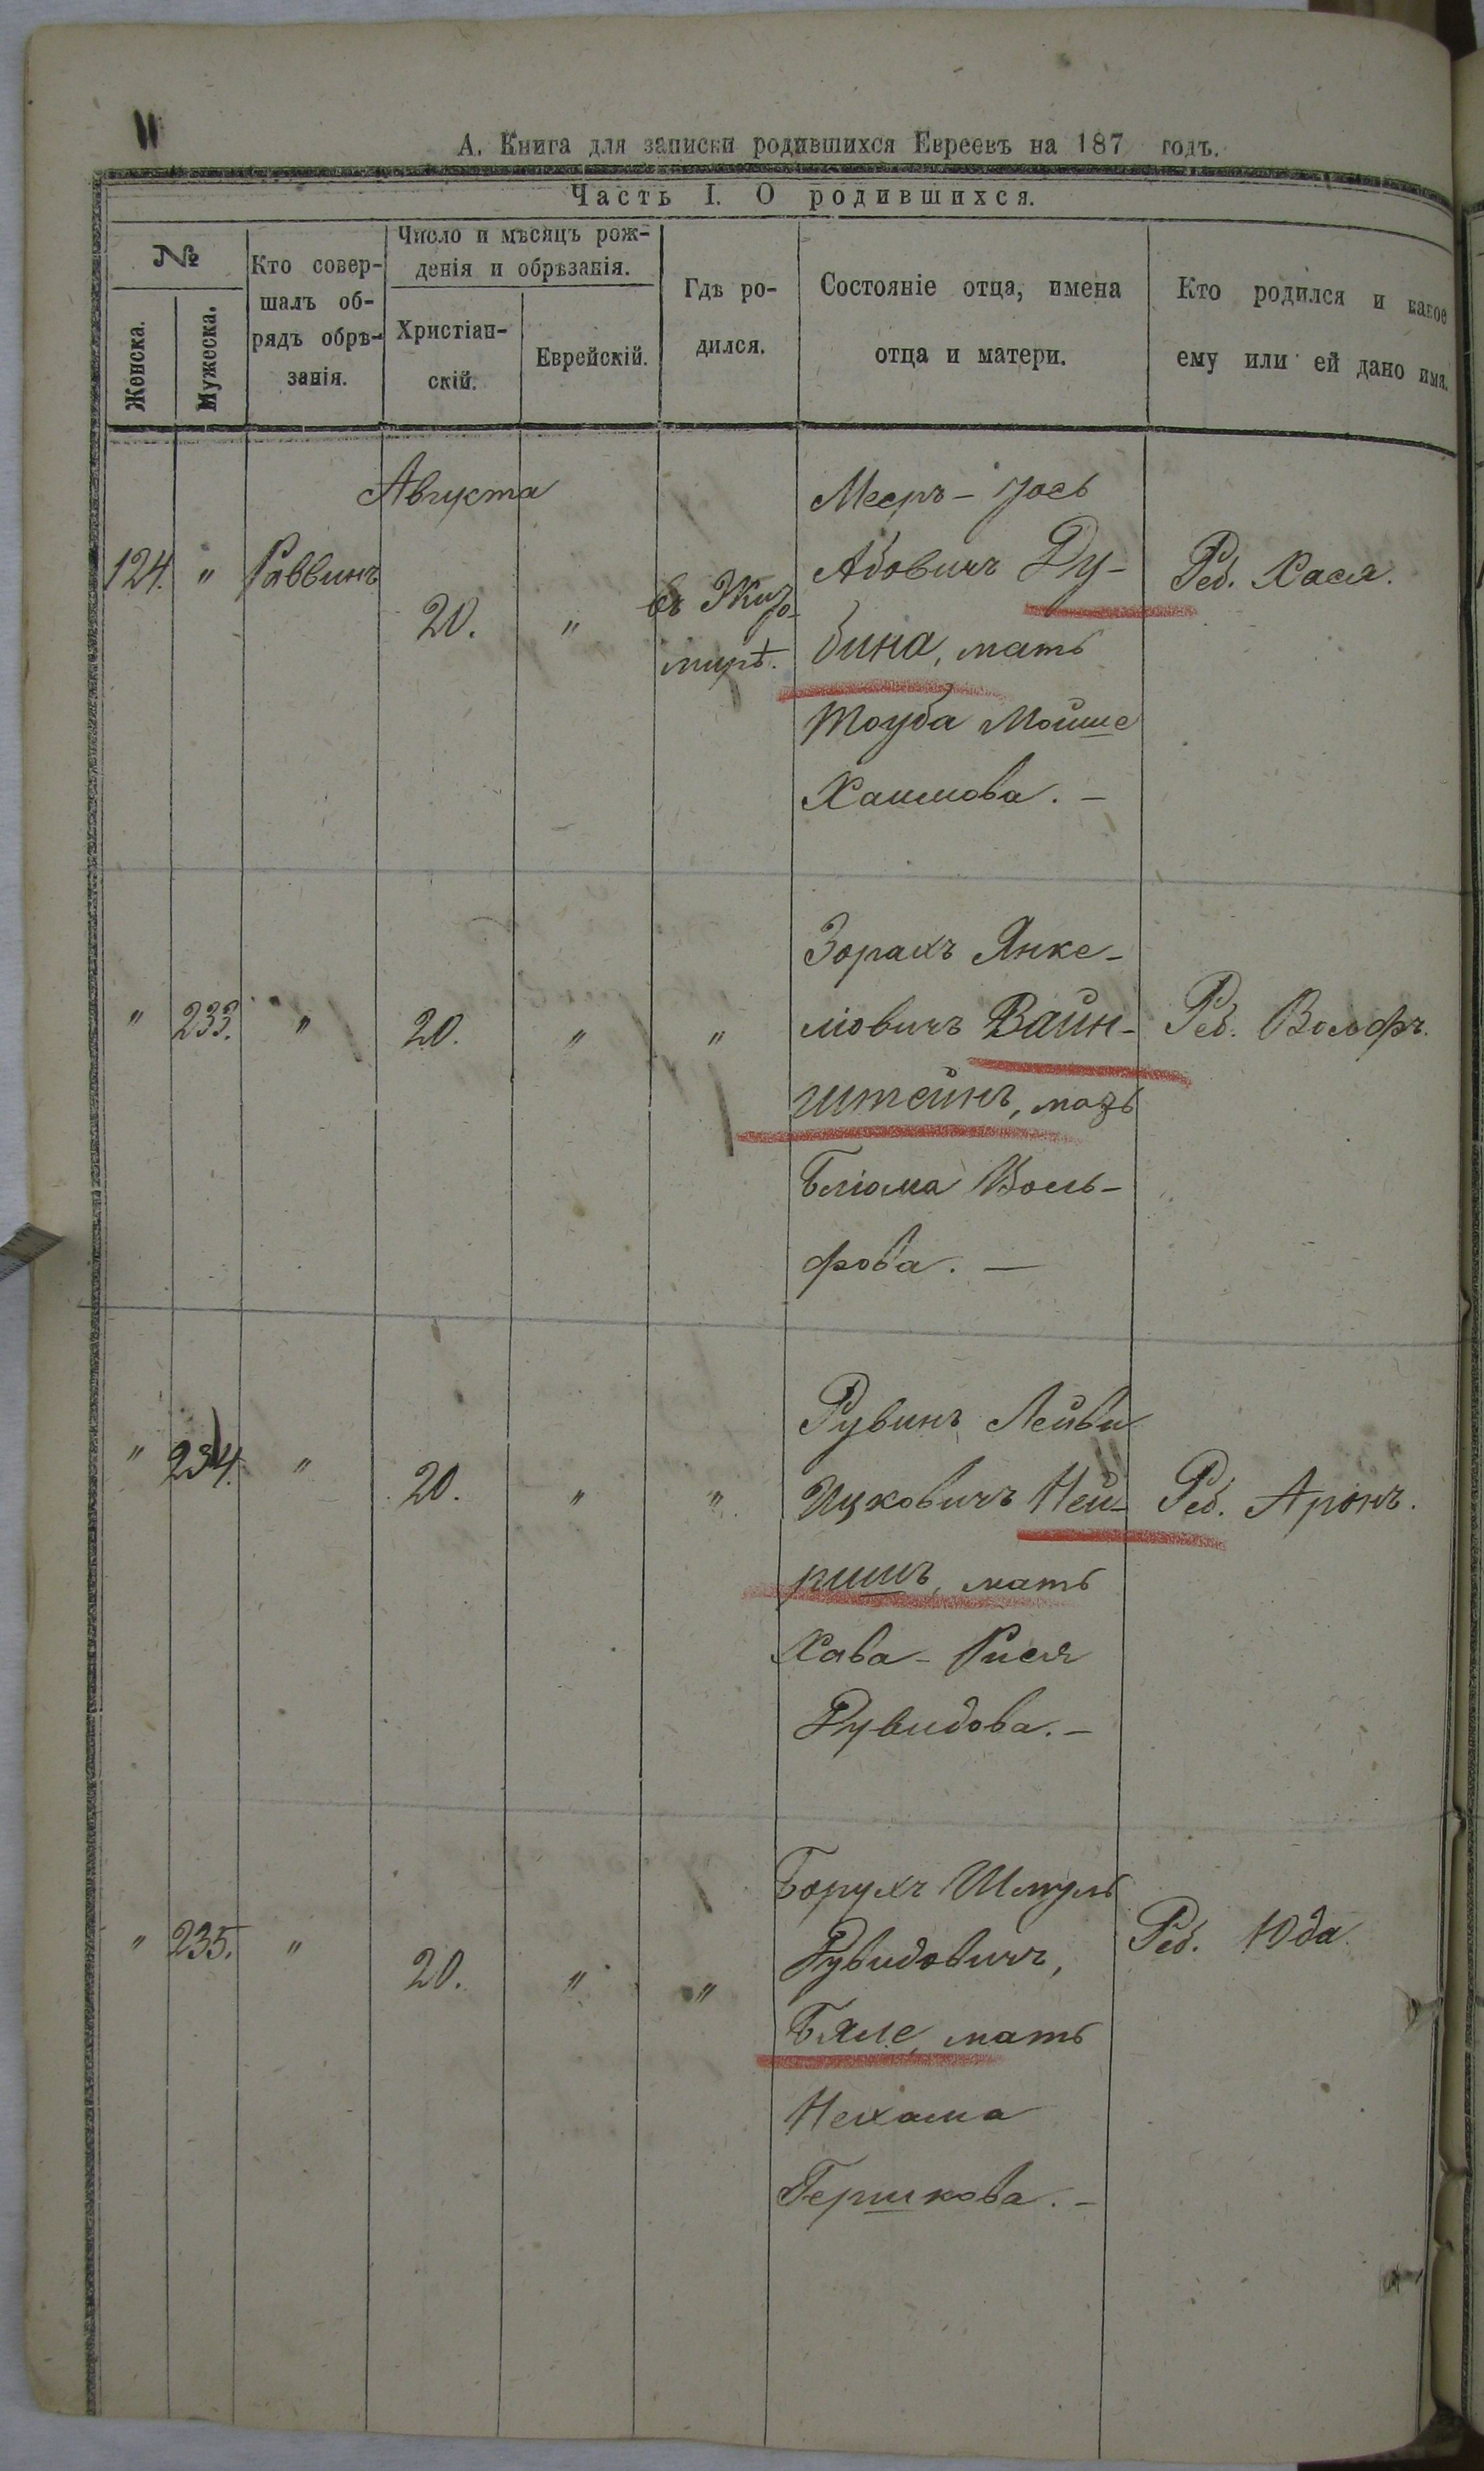 А. Книга для записки родившихся Евреевъ на 187 годъ.
Часть I. О родившихся.
№
Женска.
Мужеска.
Кто совер-
шалъ об-
рядъ обрѣ-
занія.
Число и мѣсяцъ рож-
денія и обрѣзанія.
Христіан-
скій.
Еврейскій.
Гдѣ ро-
дился.
Состояніе отца, имена
отца и матери.
Кто родился и какое
ему или ей дано имя.
Августа
124. " Раввинъ
20. "
въ Жито-
мирѣ.
Мееръ-Іось
Абовичъ Ду-
бина, мать
Тоуба Мойше
Хаимова. —
Реб. Хася.
" 233. " 20. " "
Зорахъ Янке-
ліовичъ Вайн-
штейнъ, мать
Бліома Воль-
фова. —
Реб. Вольфъ.
" 234. " 20. " "
Рувинъ Лейви
Ицковичъ Ней-
ришъ, мать
Хава-Рися
Рувидова. —
Реб. Аронъ.
" 235. " 20. " "
Борухъ Шмуль
Рувидовичъ,
Бяле, мать
Нехама
Гершкова. —
Реб. Юда.